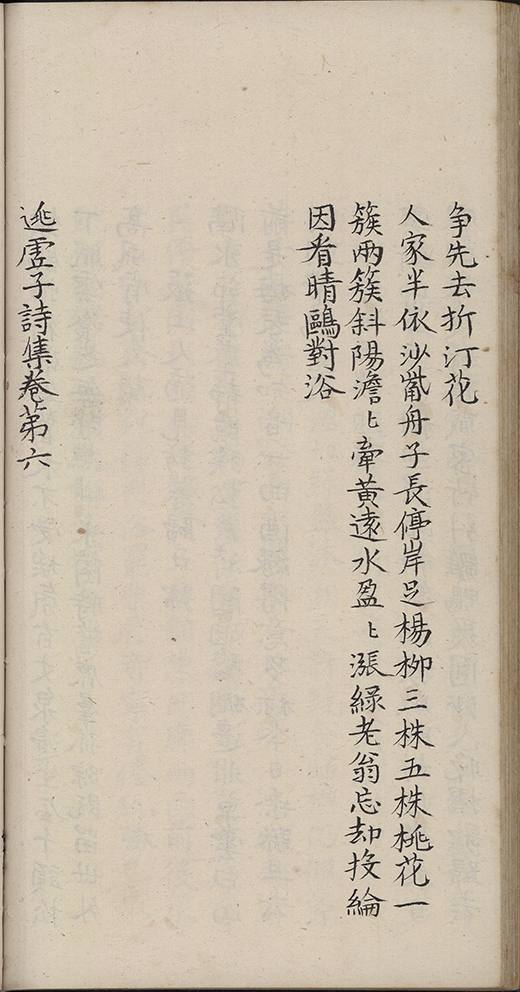 争先去折汀花
人家半依沙觜舟子長停岸足楊柳三株五株桃花一
簇兩簇斜陽澹〻牽黄遠水盈〻漲綠老翁忘却投綸
因看晴鷗對浴
逃虛子詩集卷第六